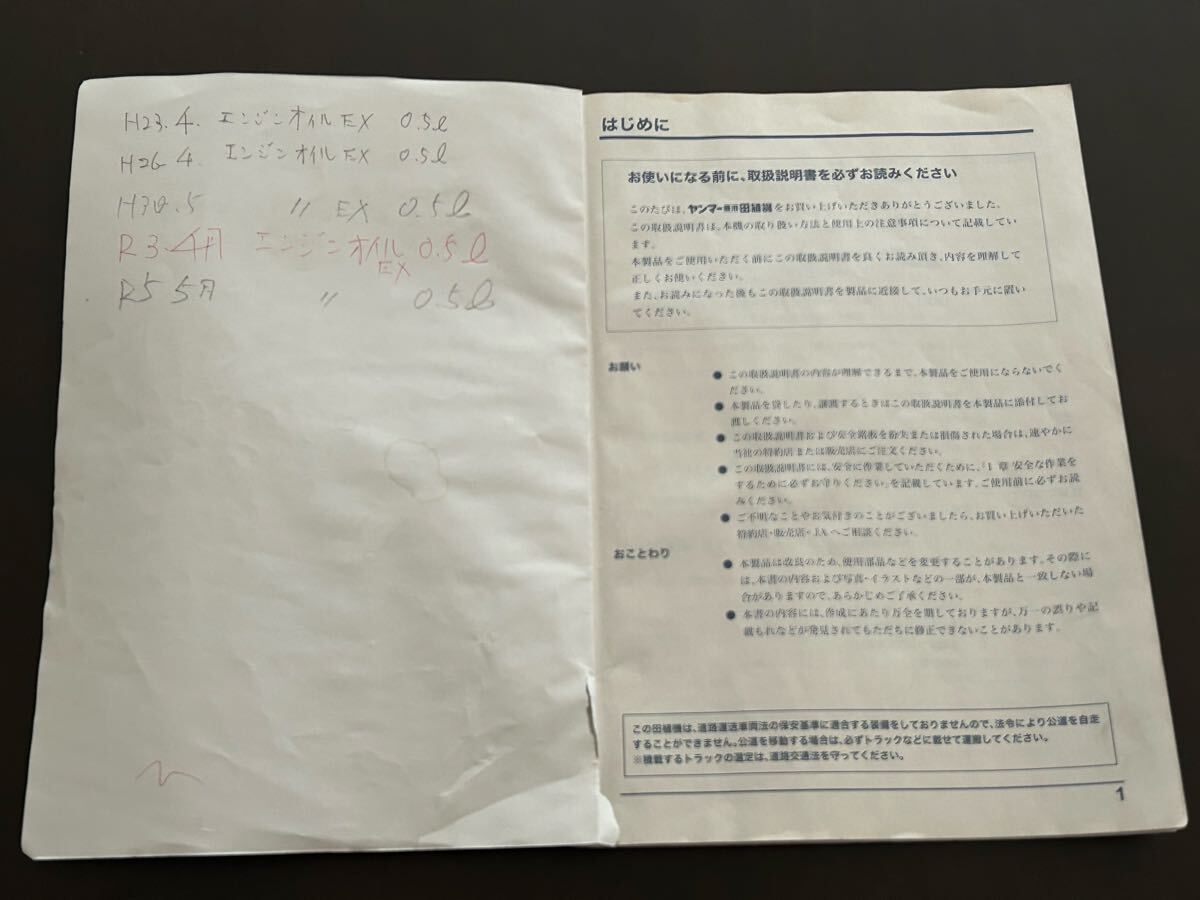 H23.4. エンジンオイル EX 0.5ℓ
H26 4 エンジンオイル EX 0.5ℓ
H30.5 〃 EX 0.5ℓ
R3.4月 エンジンオイル 0.5ℓ
EX
R5 5月 〃 0.5ℓ
はじめに
お使いになる前に、取扱説明書を必ずお読みください
このたびは、ヤンマー乗用田植機をお買い上げいただきありがとうございました。
この取扱説明書は、本機の取り扱い方法と使用上の注意事項について記載してい
ます。
本製品をご使用いただく前にこの取扱説明書を良くお読み頂き、内容を理解して
正しくお使いください。
また、お読みになった後もこの取扱説明書を製品に近接して、いつもお手元に置い
てください。
お願い
● この取扱説明書の内容が理解できるまで、本製品をご使用にならないでく
ださい。
● 本製品を貸したり、譲渡するときはこの取扱説明書を本製品に添付してお
渡しください。
● この取扱説明書および安全銘板を紛失または損傷された場合は、速やかに
当社の特約店または販売店にご注文ください。
● この取扱説明書には、安全に作業していただくために、「1 章 安全な作業を
するために必ずお守りください」を記載しています。ご使用前に必ずお読
みください。
● ご不明なことやお気付きのことがございましたら、お買い上げいただいた
特約店・販売店・JAへご相談ください。
おことわり
● 本製品は改良のため、使用部品などを変更することがあります。その際に
は、本書の内容および写真・イラストなどの一部が、本製品と一致しない場
合がありますので、あらかじめご了承ください。
● 本書の内容には、作成にあたり万全を期しておりますが、万一の誤りや記
載もれなどが発見されてもただちに修正できないことがあります。
この田植機は、道路運送車両法の保安基準に適合する装備をしておりませんので、法令により公道を自走
することができません。公道を移動する場合は、必ずトラックなどに載せて運搬してください。
※積載するトラックの選定は、道路交通法を守ってください。
1